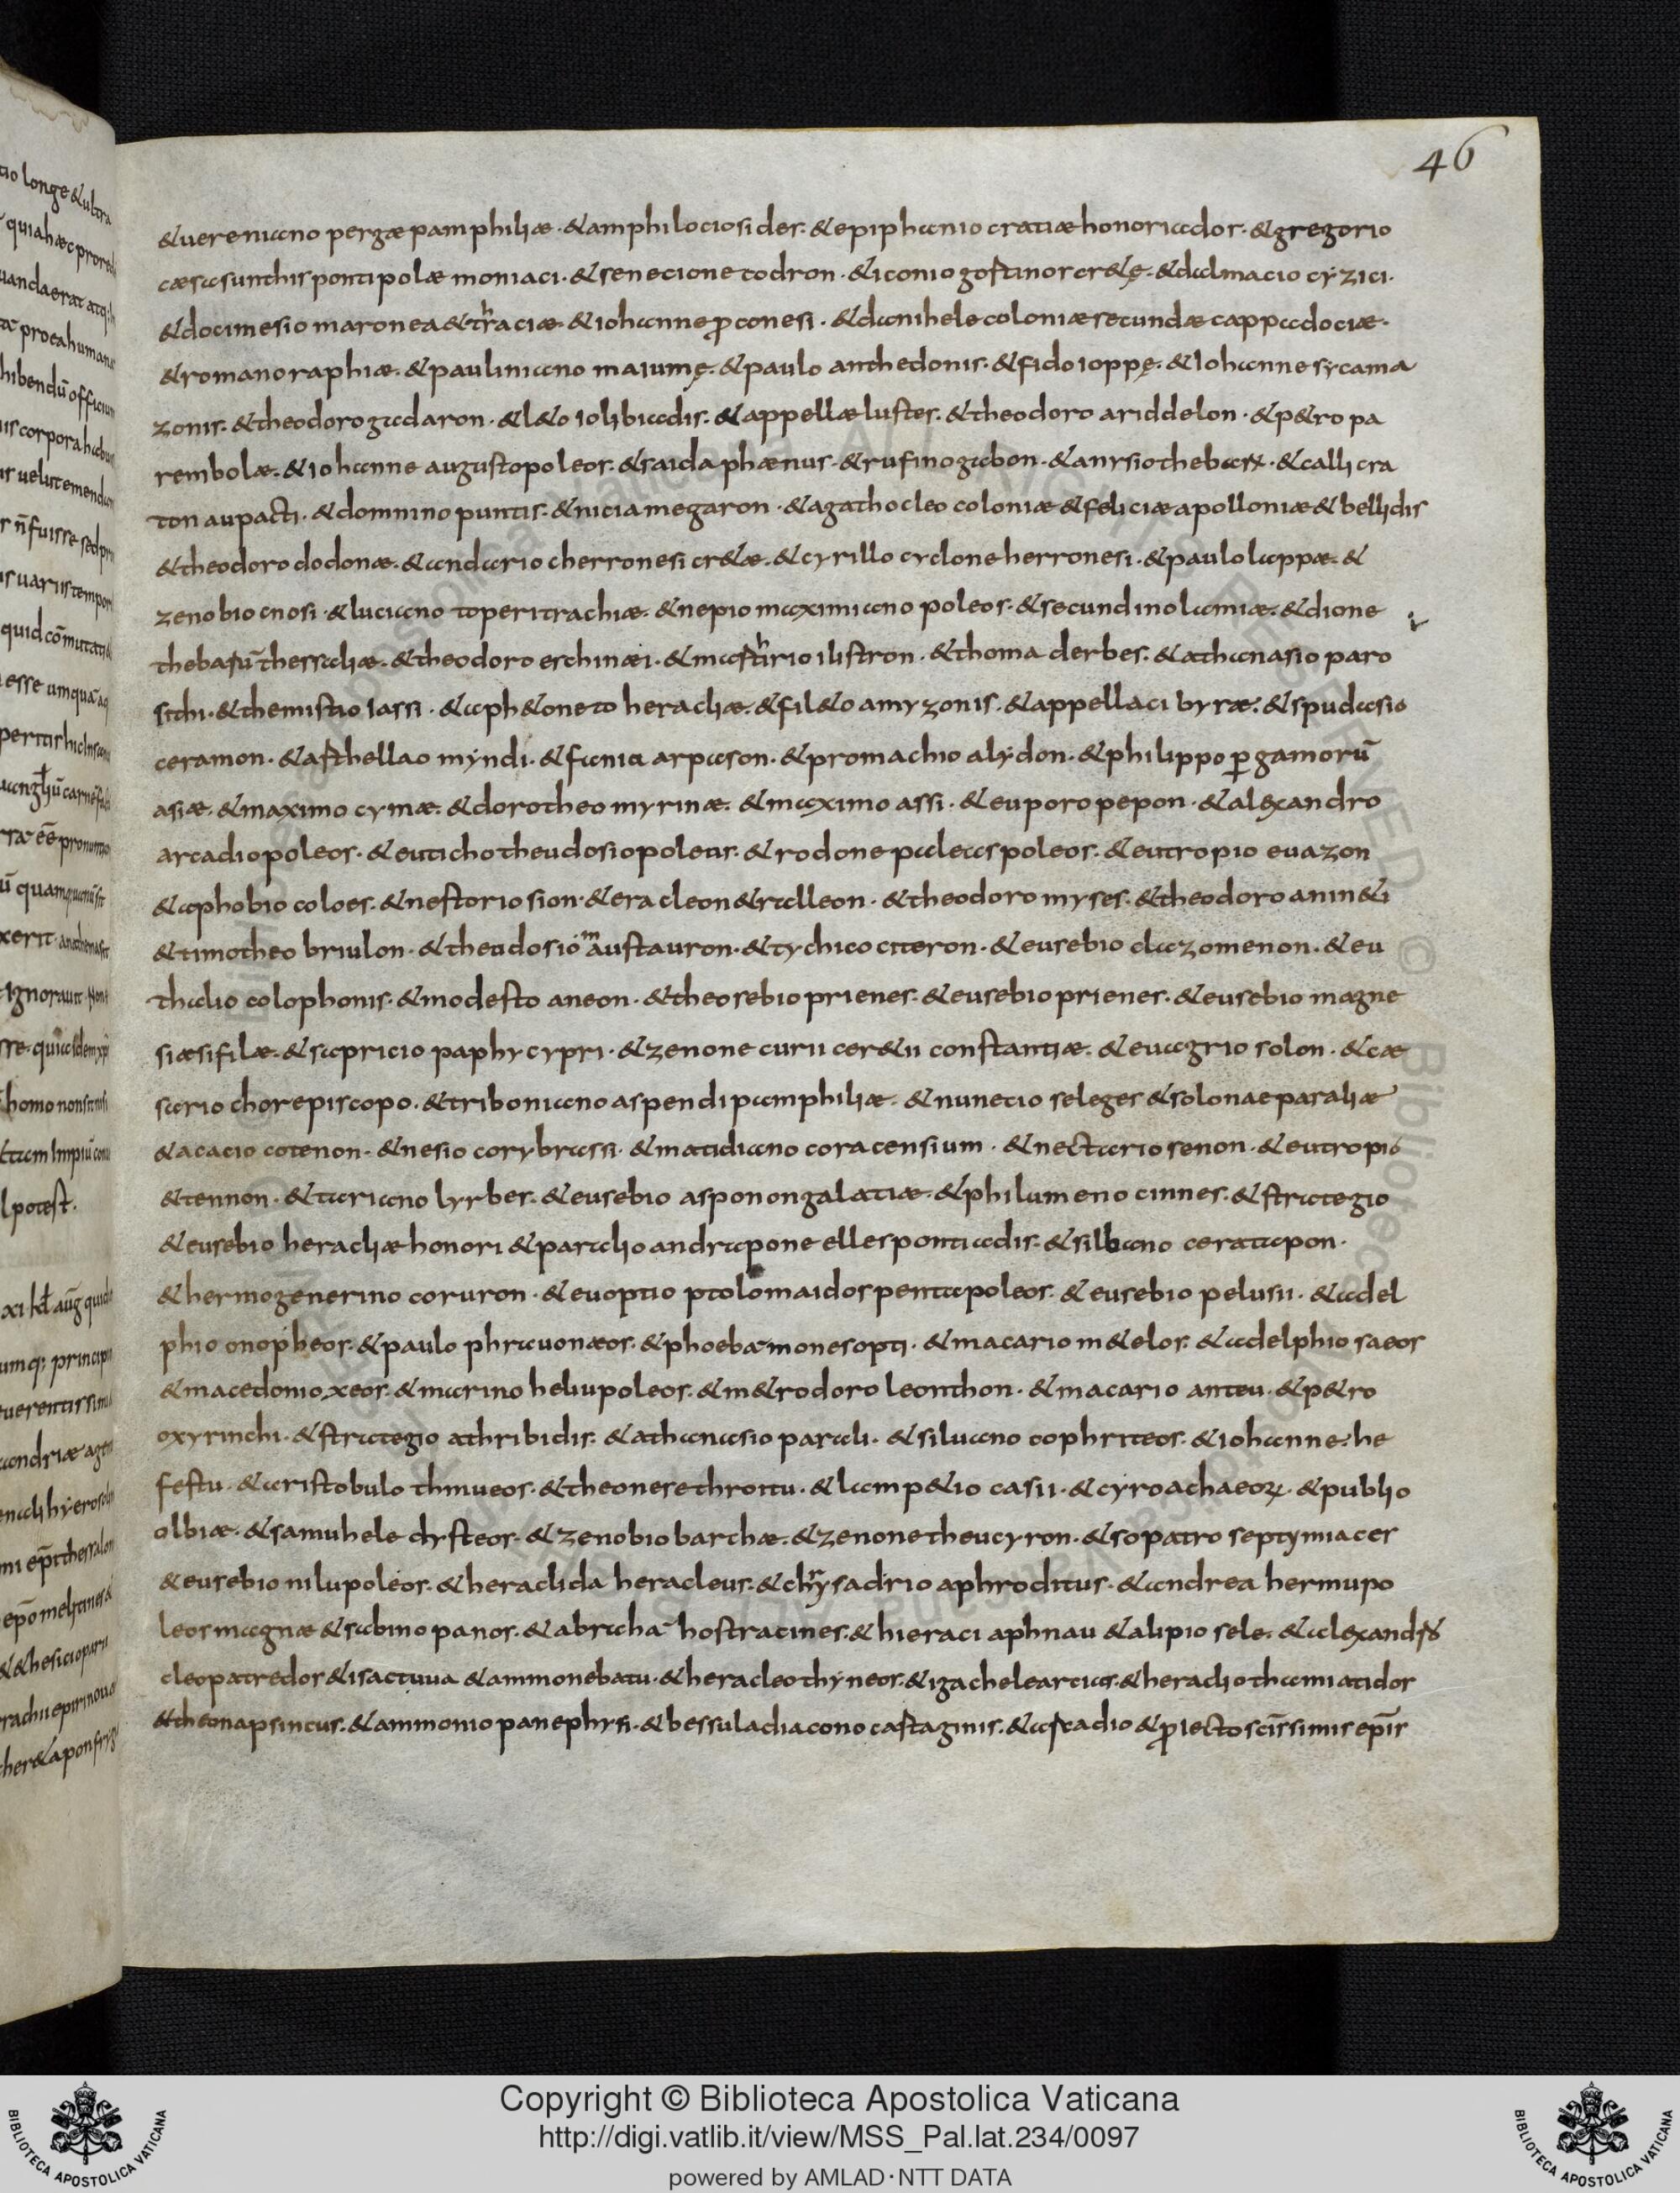 46
&uereniano pergæ pamphiliæ · &amphilociosi des · &epiphanio cratiæ honoriados · &gregorio
cæsasunthis ponti polæmoniaci · &senecione todron · &iconio gostinor cr&ę · &dalmacio cyzici ·
&docimesio maronea &thraciæ &iohanne ꝓconesi · &danihele coloniæ secundæ cappadociæ ·
&romano raphiæ · &pauliniano maiumę · &paulo anthedonis · &fido ioppę · &iohanne sycama
zonis · &theodoro gadaron · &l&o iolibiadis · &appellæ lustes · &theodoro ariddelon · &p&ro pa
rembolæ · &iohanne augustopoleos · &saida phænus · &rufino gabon · &anysio thebaꝝ · &calli cra
ton aupacti · &domnino puntis · &nicia megaron · &agathocleo coloniæ &feliciæ apolloniæ & bellidis
&theodoro dodonæ · &andario cherronesi cr&æ · &cyrillo cyclone herronesi · &paulo lappæ · &
zenobio cnosi · &luciano toperi trachiæ · &nepio maximiano poleos · &secundino lamiæ · &dione
thebarū thessaliæ · &theodoro eschinæi · &masthirio ilistron · &thoma derbes · &athanasio paro
sithi · &themistio iassi · &aph&oneto heracliæ · &fil&o amyzonis · &appellaci byræ · &spudasio
ceramon · &afthellao myndi · &fania arpason · &promachio alydon · &philippo ꝑgamorū
asiæ · &maximo cymæ · &dorotheo myrinæ · &maximo assi · &euporo pepon · &alexandro
arcadiopoleos · &euticho theudosiopoleus · &rodone paleaspoleos · &eutropio euazon
&aphobio coloes · &nestorio sion · &eracleon &ralleon · &theodoro myses · &theodoro anin&i
&timotheo briulon · &theudosio mastauron · &tychico citeron · &eusebio clazomenon · &eu
thalio colophonis · &modesto aneon · &theosebio prienes · &eusebio prienes · &eusebio magne
siæ sifilæ · &sapricio paphy cypri · &zenone curii cer&ii constantiæ · &euagrio solon · &cæ
sario chorepiscopo · &triboniano aspendi pamphiliæ · &nunecio seleges &solonae paraliæ
&acacio cotenon · &nesio corybrassi · &matidiano coracensium · &nectario senon · &eutropio
&tennon · &tariano lyrbes · &eusebio asponon galatiæ · &philumeno cinnes · &strategio
&eusebio heracliæ honori &paralio andrapone ellespontiadis · &silbano ceratapon ·
&hermogene rino coruron · &euoptio ptolomaidos pentapoleos · &eusebio pelusii · &adel
phio onopheos · &paulo phrauonæos · &phoebamone sopti · &macario m&elos · &adelphio saeos
&macedonio xeos · &marino heliupoleos · &m&rodoro leonthon · &macario anteu · &p&ro
oxyrinchi · &strategio athribidis · &athanasio parali · &siluano cophriteos · &iohanne he
festu · &aristobulo thmueos · &theone sethroitu · &lampetio casii · &cyro achaeoꝝ · &publio
olbiæ · &samuhele dysteos · &zenobio barchæ · &zenone theucyron · &sopatro septymiaces
&eusebio nilupoleos · &heraclida heracleus · &chrysadrio aphroditus · &andrea hermupo
leos magnæ &sabino panos · &abrahā hostracines · &hieraci aphnau &alipio sele · &alexandro
cleopatredos &isac tuua &ammone batu · &heracleo thyneos · &iga chelearcias · &heraclio thamiatidos
&theona psincus · &ammonio panephysi · &bessula diacono castaginis · &arcadio &ꝓiecto scīssimis epīs
Copyright © Biblioteca Apostolica Vaticana
http://digi.vatlib.it/view/MSS_Pal.lat.234/0097
powered by AMLAD·NTT DATA
BIBLIOTECA APOSTOLICA VATICANA
BIBLIOTECA APOSTOLICA VATICANA